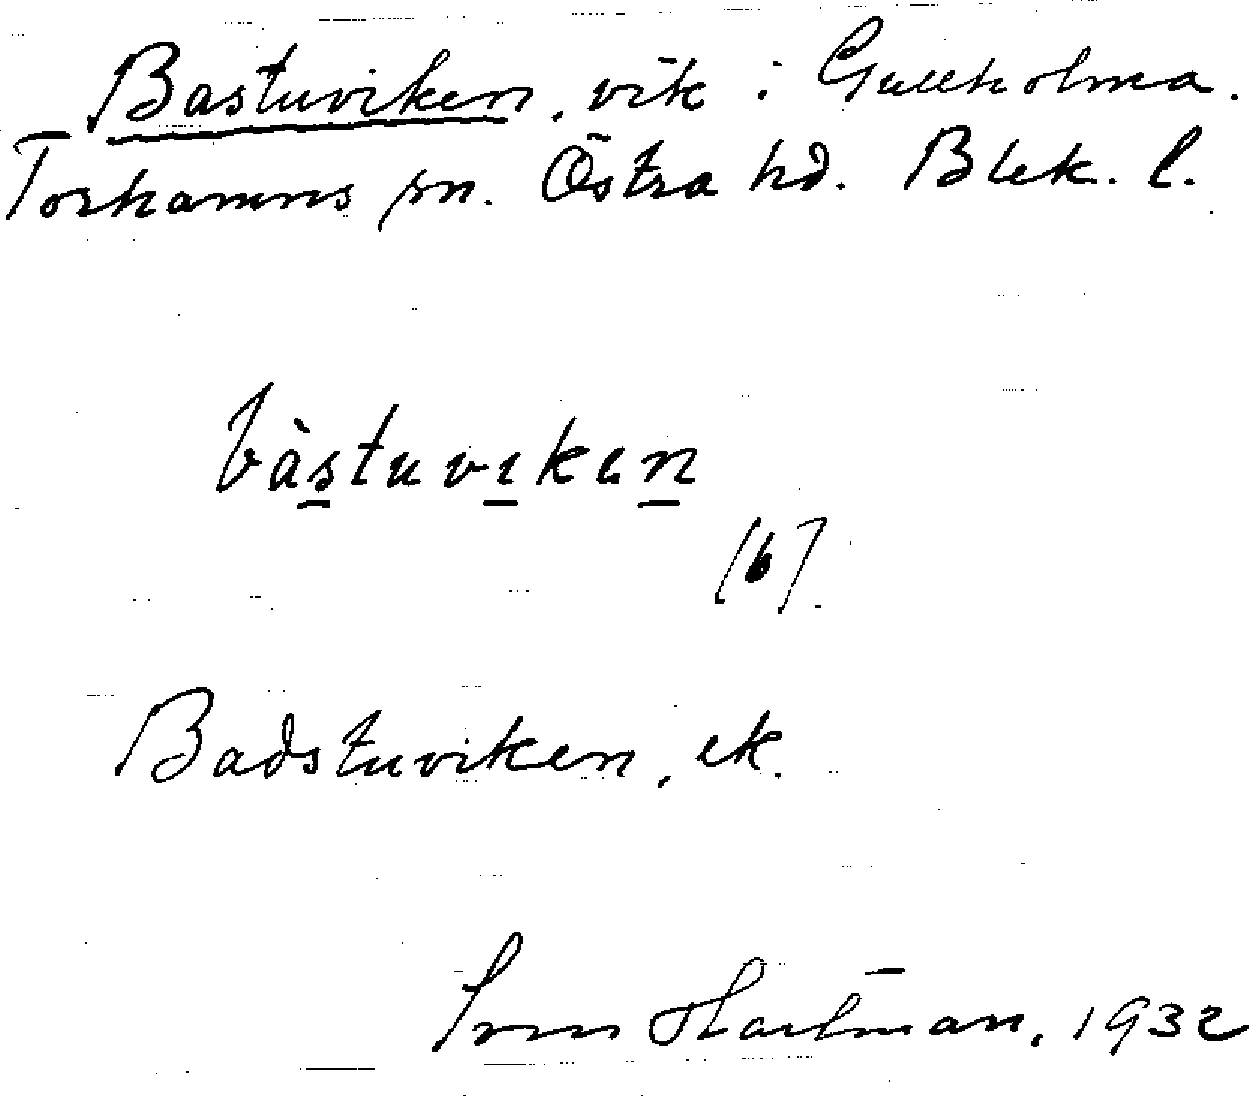 Bastuviken, vik i Gullholma.
Torhamns sn. Östra hd. Blek. l.
bàstuvikin
(b).
Badstuviken, ek.
Sven Hartman, 1932